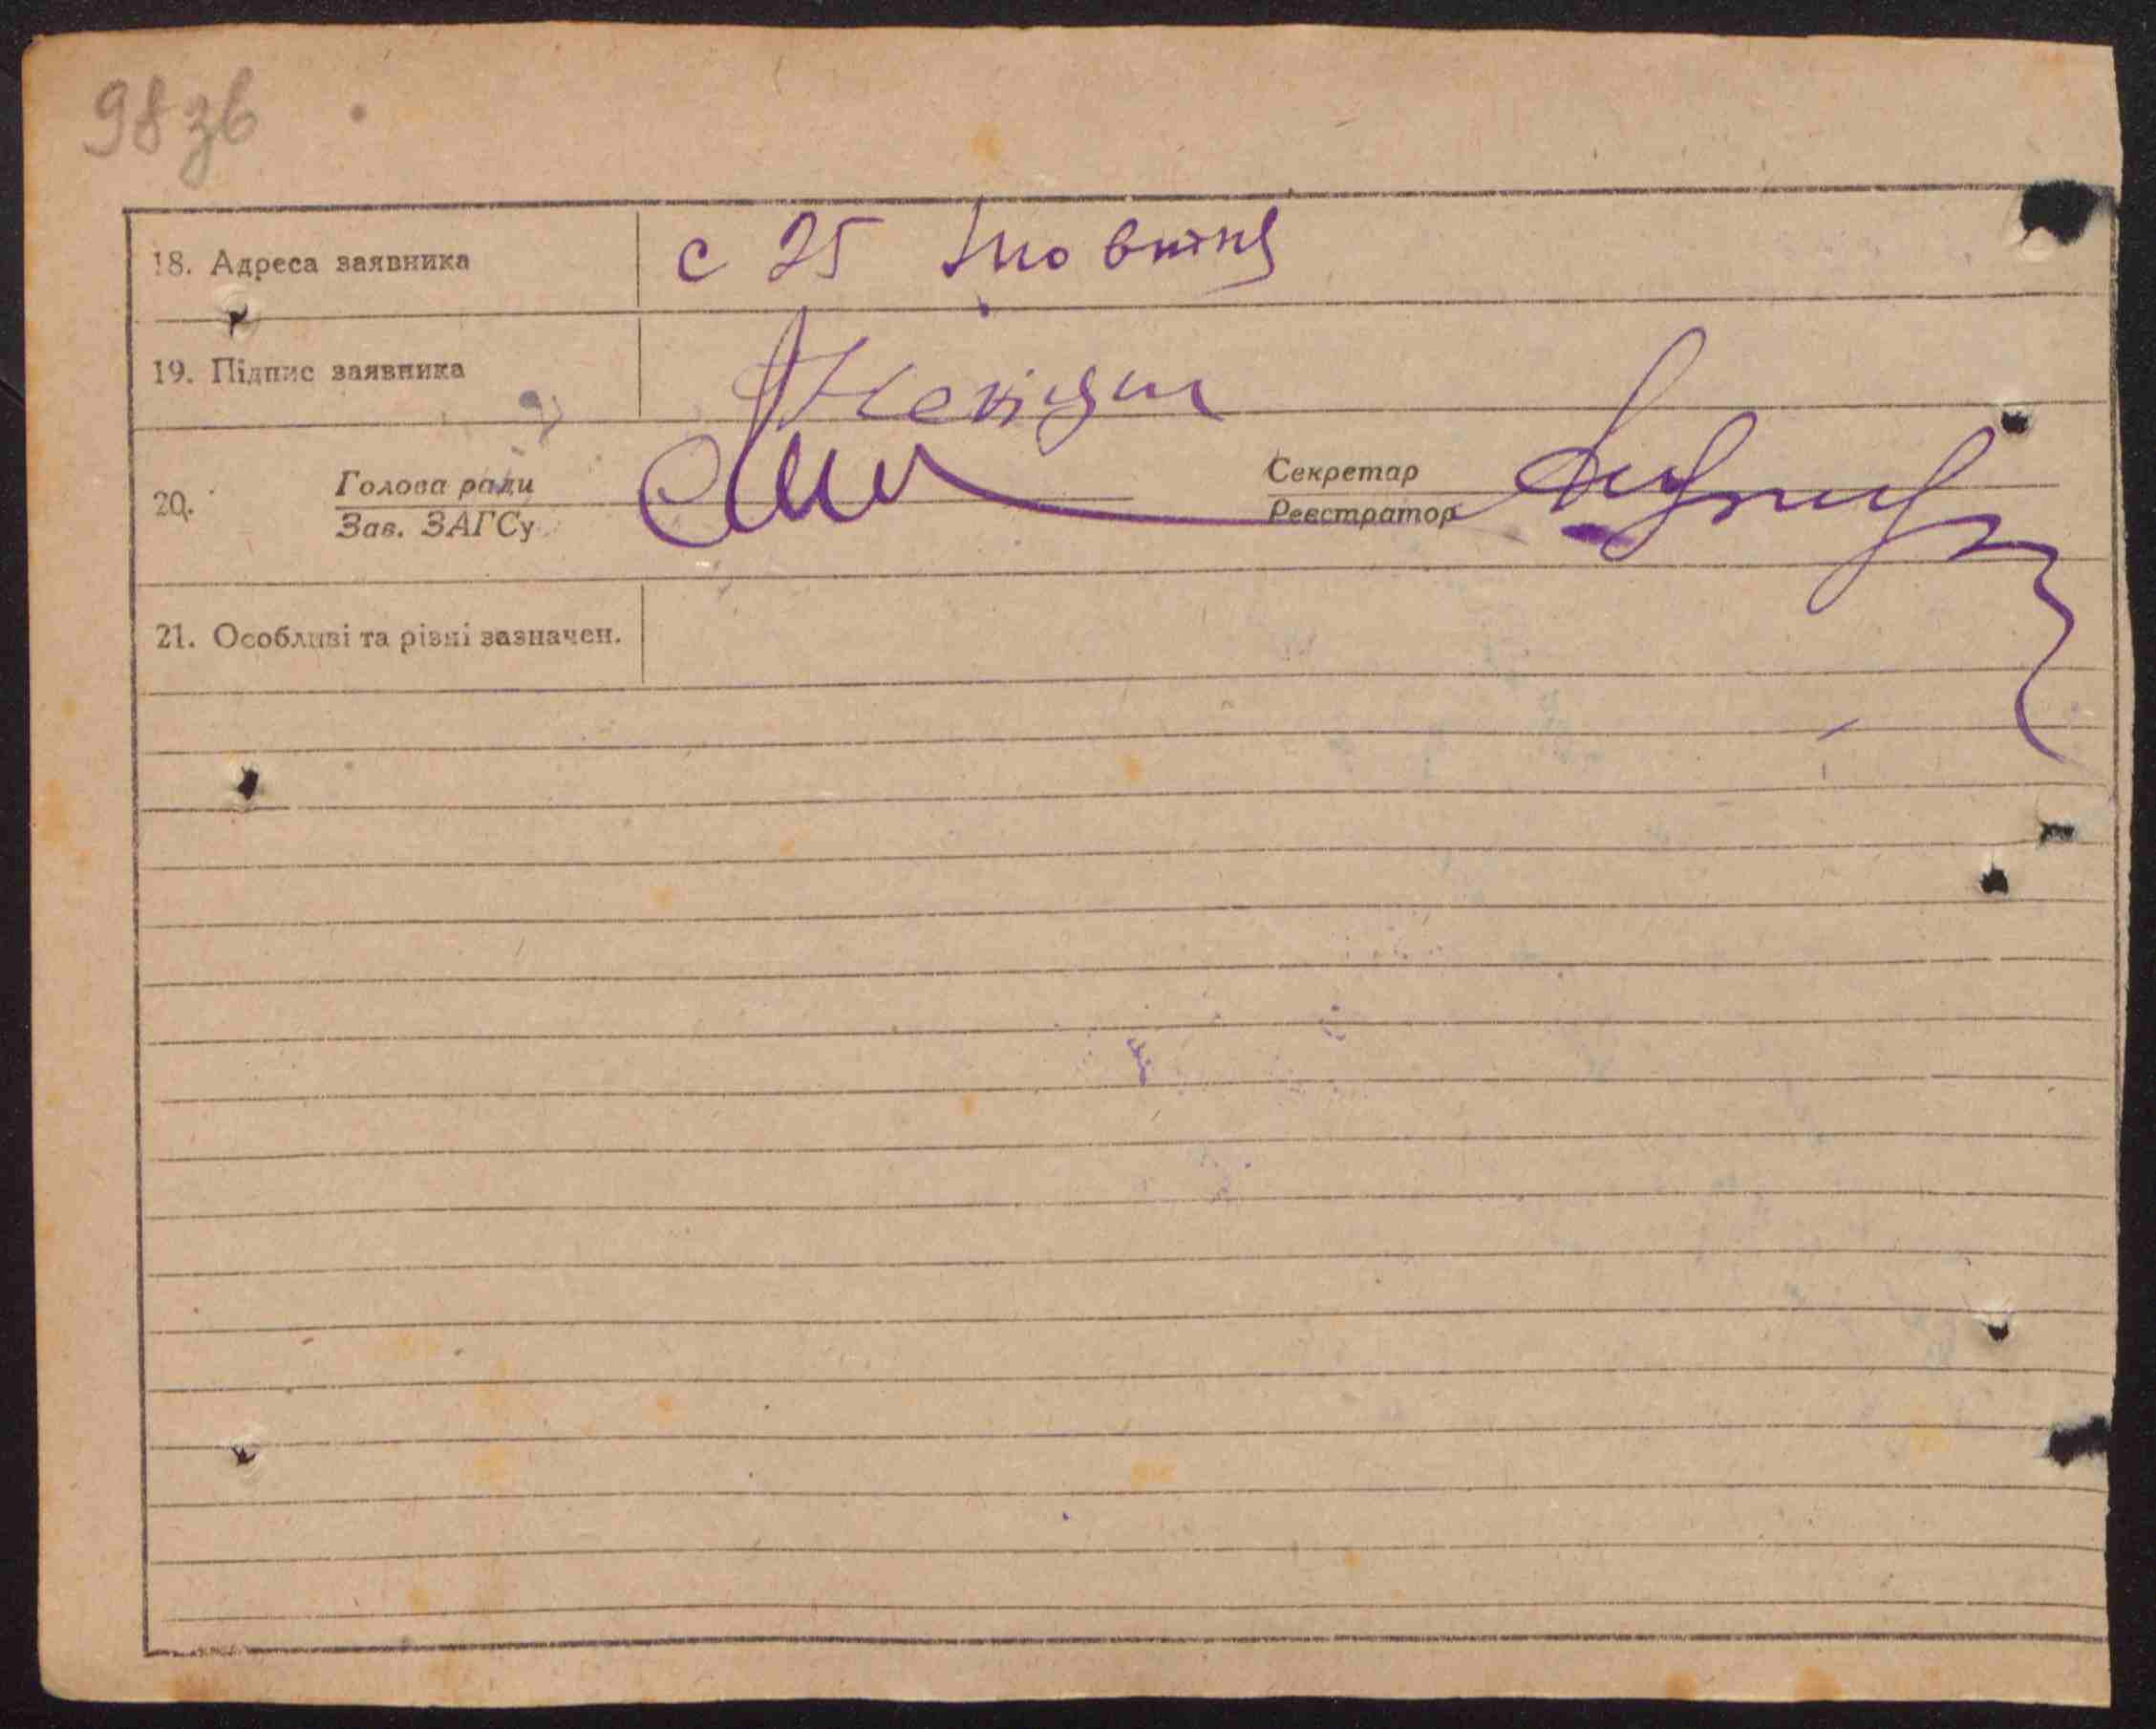 98 зв
18. Адреса заявника с 25 Жовтня
19. Підпис заявника
20. Голова ради Секретар
Зав. ЗАГСу Реєстратор
21. Особливі та різні зазначен.